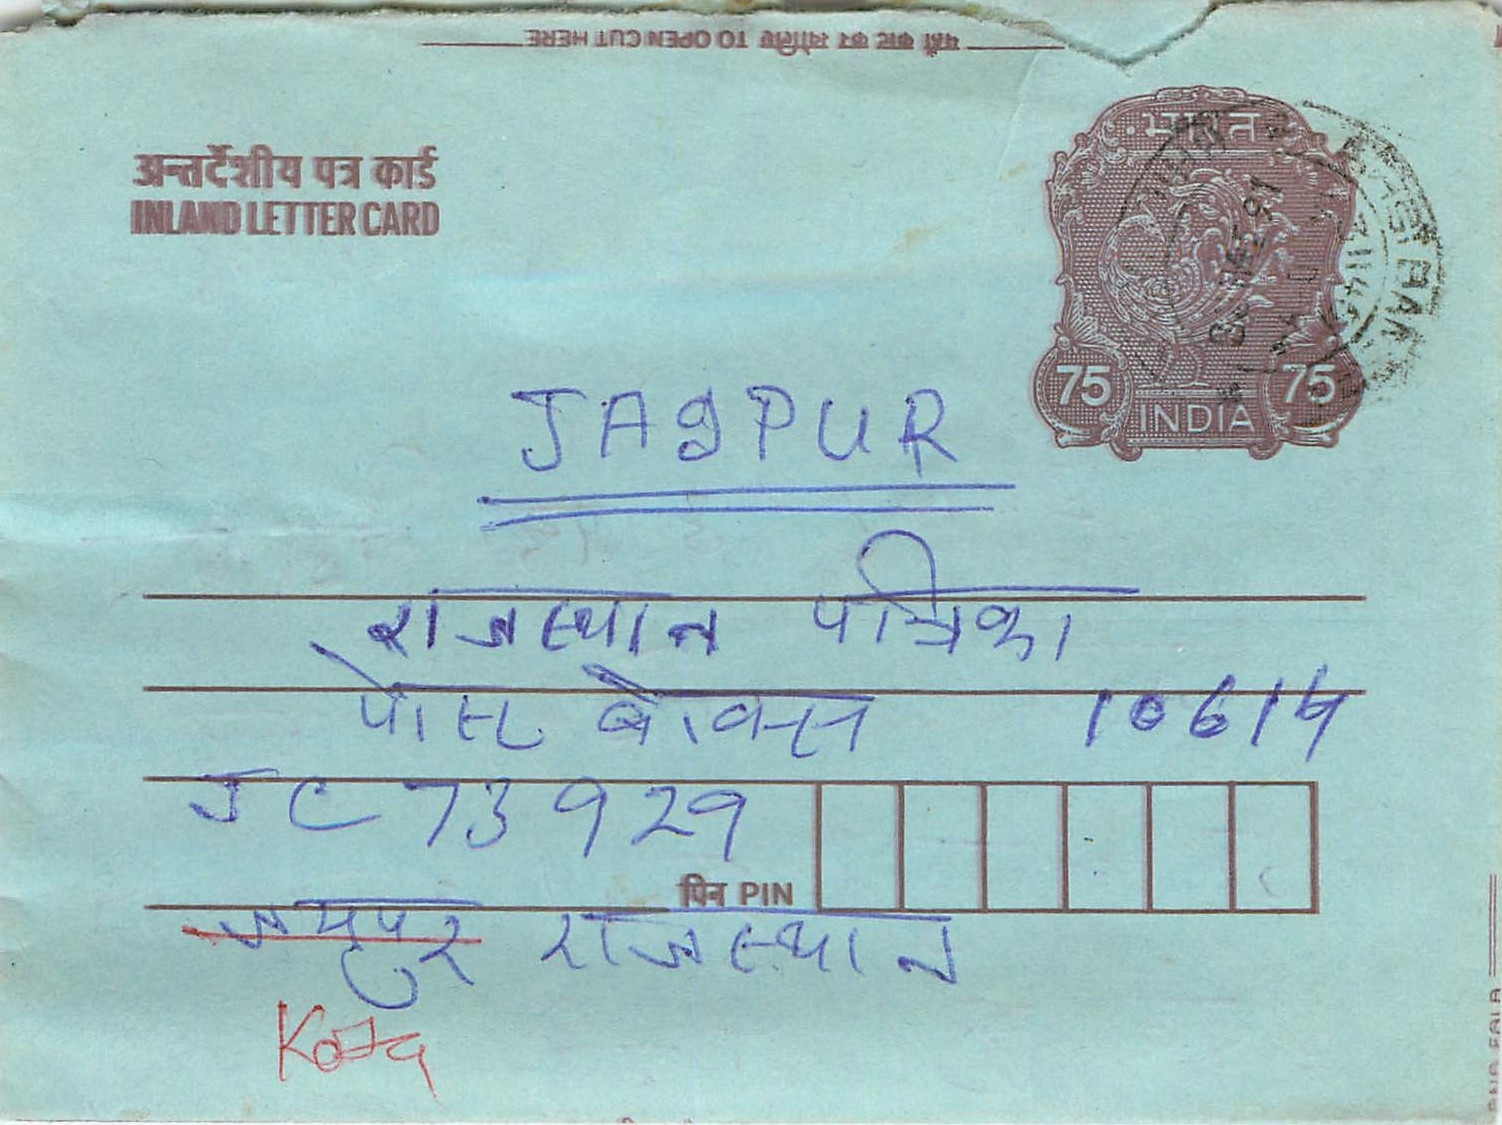 यहाँ काट कर खोलिए TO OPEN CUT HERE
अन्तर्देशीय पत्र कार्ड
INLAND LETTER CARD
भारत
75 75
INDIA
JAGPUR
राजस्थान पत्रिका
पोस्ट बोक्स 10614
JC 73929
पिन PIN
जयपुर राजस्थान
Kota